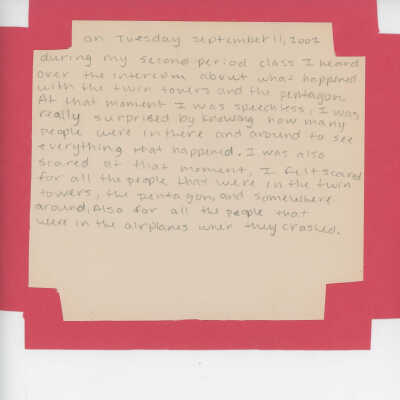 on Tuesday September 11, 2001
during my second period class I heard
over the intercom about what happened
with the twin towers and the pentagon.
At that moment I was speechless, I was
really surprised by knowing how many
people were in there and around to see
everything that happened. I was also
scared at that moment, I felt scared
for all the people that were in the twin
towers, the pentagon, and somewhere
around. Also for all the people that
were in the airplanes when they crashed.